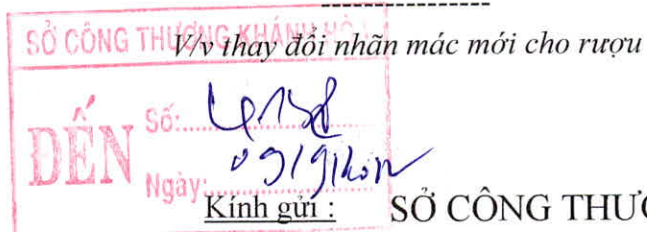 SỞ CÔNG THƯƠNG KHÁNH HÒA
V/v thay đổi nhãn mác mới cho rượu
ĐẾN
Số:
Ngày: 09/9/2012
Kính gửi : SỞ CÔNG THƯƠ